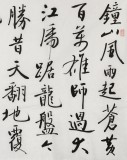 鐘山風雨起蒼黃
百萬雄師過大
江虎踞龍盤今
勝昔天翻地覆